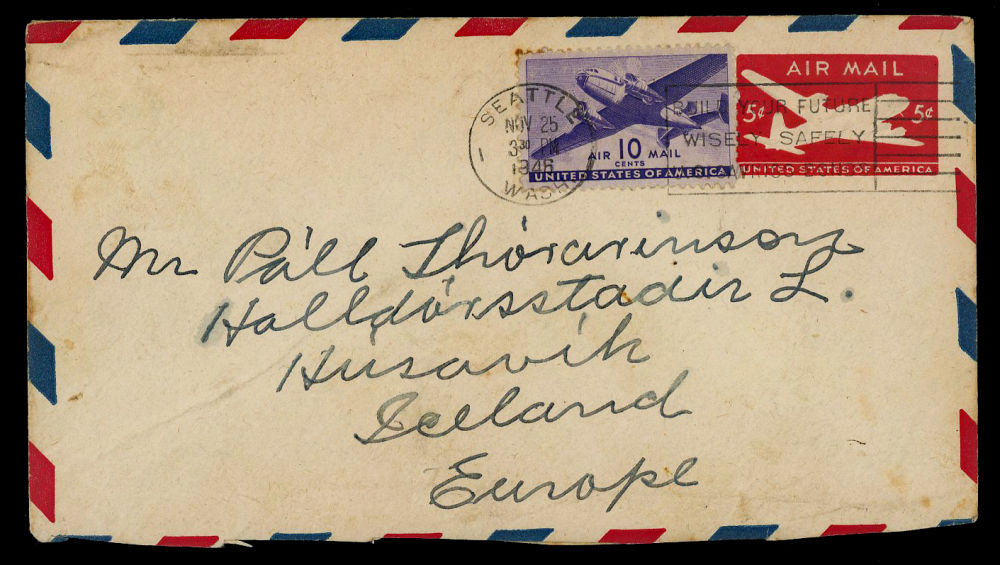 AIR MAIL
5¢ 5¢
UNITED STATES OF AMERICA
AIR 10 MAIL
CENTS
UNITED STATES OF AMERICA
SEATTLE
NOV 25
3 30 PM
1946
WASH.
BUILD YOUR FUTURE
WISELY SAFELY
Mr Páll Thórarinson
Halldórsstadir L.
Húsavík
Iceland
Europe